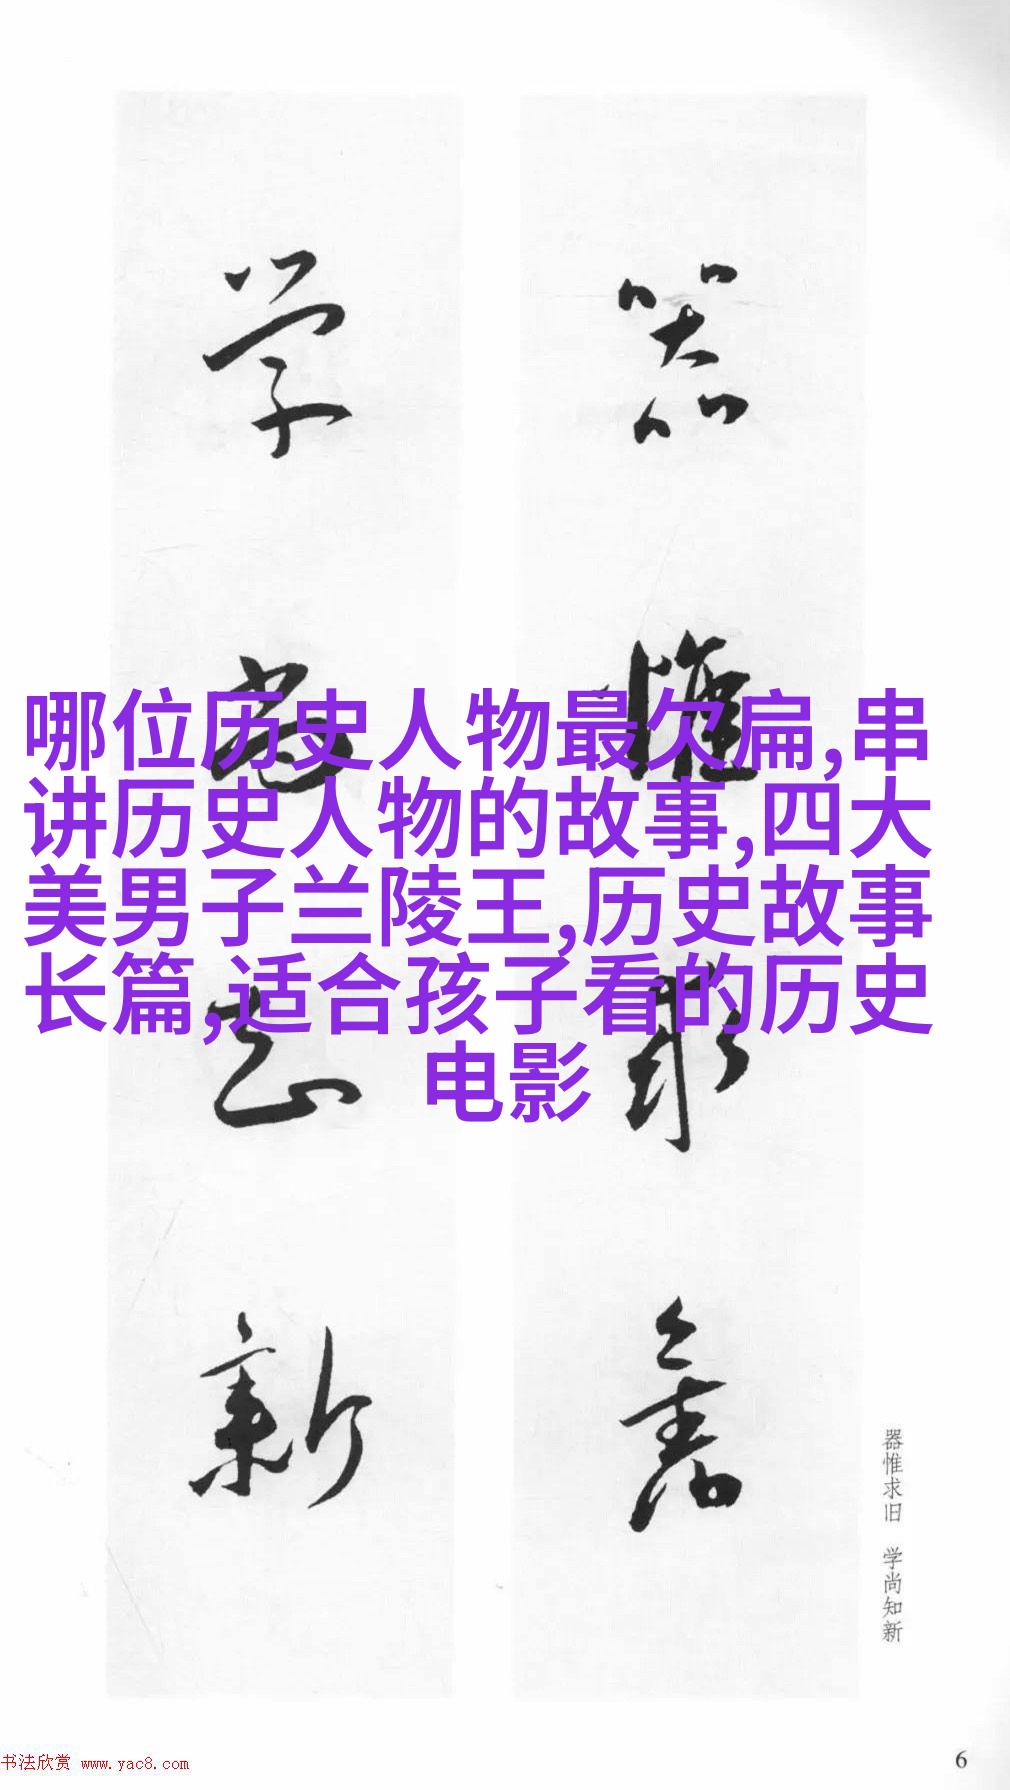 器惟求舊
学尚知新
哪位历史人物最欠扁,串
讲历史人物的故事,四大
美男子兰陵王,历史故事
长篇,适合孩子看的历史
电影
器惟求旧 学尚知新
书法欣赏 www.yac8.com
6